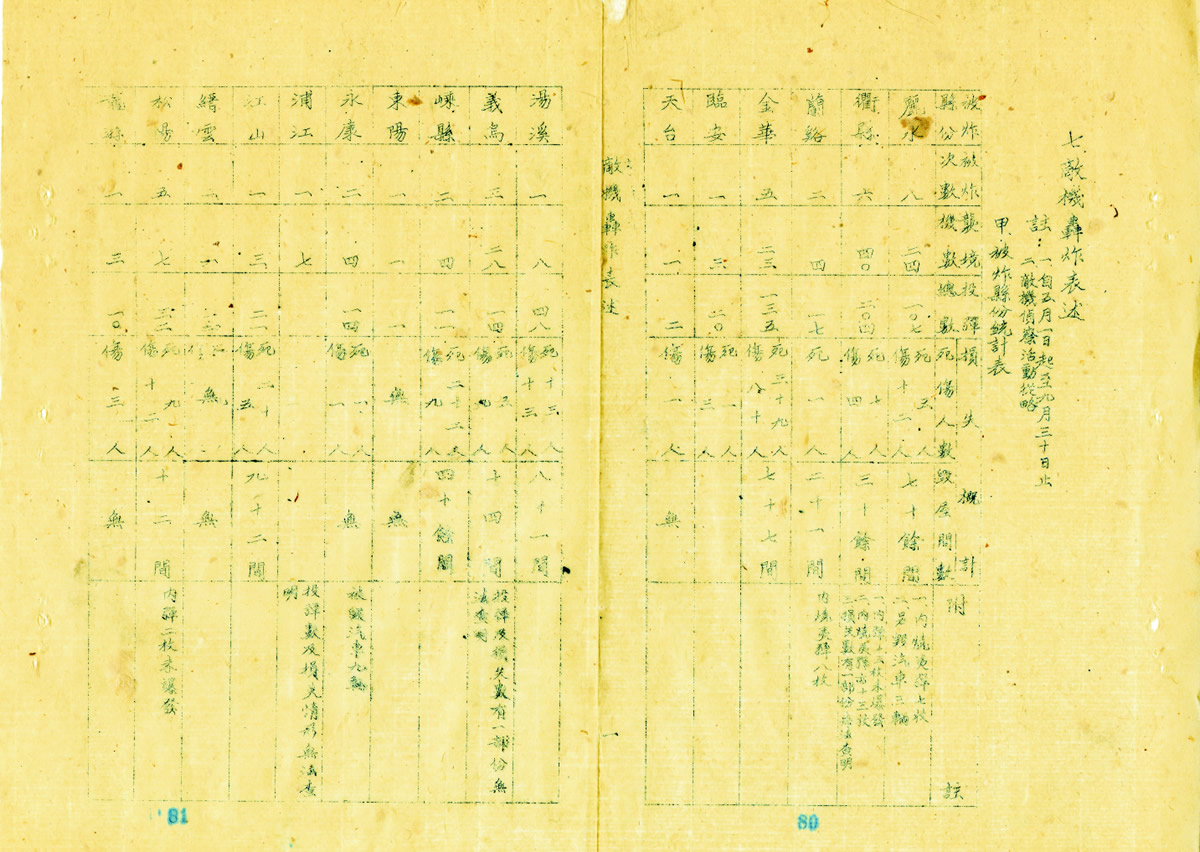 七敵機轟炸表述
註：一自五月一日起至九月三十日止
二敵機偵察活動從略
甲、被炸縣份統計表
被炸縣份 被炸次數 襲境機數 投彈總數 損失概計 死傷人數 毀屋間數 附註
麗水 八 二四 一〇七 死五人 傷十二人 七十餘間 一、內燒夷彈七枚 二、另毀汽車三輛
衢縣 六 四〇 二〇四 死七人 傷四人 三十餘間 一、內彈十二枚未爆發 二、內燒夷彈五十三枚 三、損失數有一部份無法查明
蘭谿 二 四 一七 死一人 二十一間 內燒夷彈八枚
金華 五 二三 一三五 死三十九人 傷八十人 七十七間
臨安 一 六 二〇 死一人 傷三人
天台 一 一 二 傷一人 無
敵機轟炸表述
一
80
湯溪 一 八 四八 死十三人 傷十三人 八十一間
義烏 三 二八 一四 死五人 傷九人 十四間 投彈及損失數有一部份無法查明
嵊縣 二 四 一一 死二十二人 傷九人 四十餘間
東陽 一 一 一 無 無
永康 二 四 一四 死一人 傷一人 無 被毀汽車九輛
浦江 一 七 投彈數及損失情形無法查明
江山 一 三 二一 死二十人 傷五人 九十二間
縉雲 無 無
松陽 五 七 三二 死九人 傷十二人 十二間 內彈二枚未爆發
一 三 一〇 傷三人 無
81